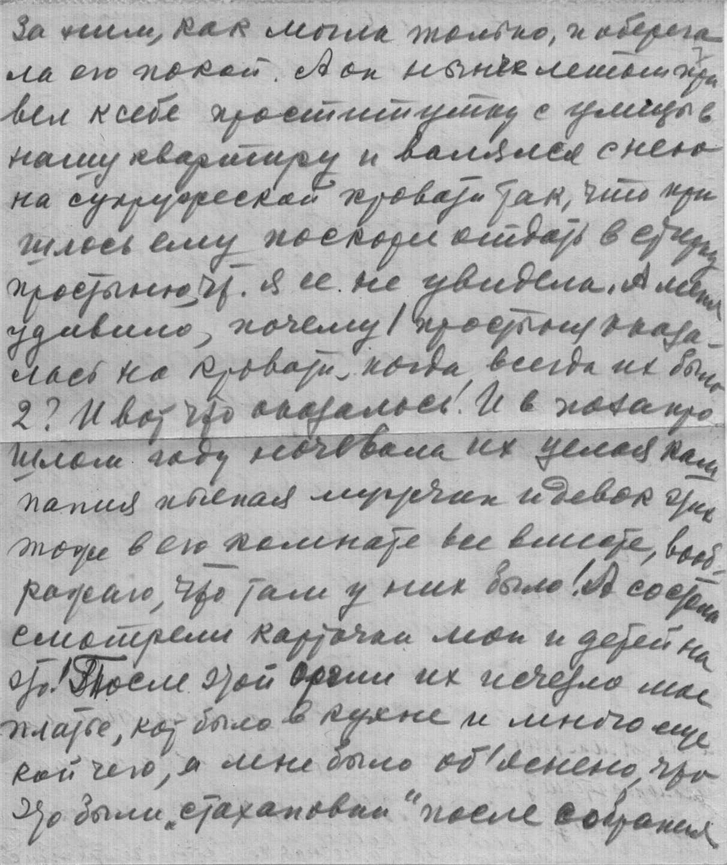 за ним, как могла только, и оберега
ла его покой. А он нынче летом при
вел к себе проститутку с улицы в
нашу квартиру и валялся с нею
на супружеской кровати так, что при
шлось ему поскорее отдать в стирку
простыню, чт. я ее не увидела. А меня
удивило, почему 1 простыня оказа-
лась на кровати, когда всегда их было
2? И вот что оказалось! И в позапро
шлом году ночевала их целая ком
пания пьяная мужчин и девок
тоже в его комнате все вместе, вооб-
ражаю, что там у них было! А со стены
смотрели карточки мои и детей на
это! После этой оргии их исчезло мое
платье, кот было в кухне и много еще
кой чего, а мне было об'яснено, что
это были „стахановки" после собрания